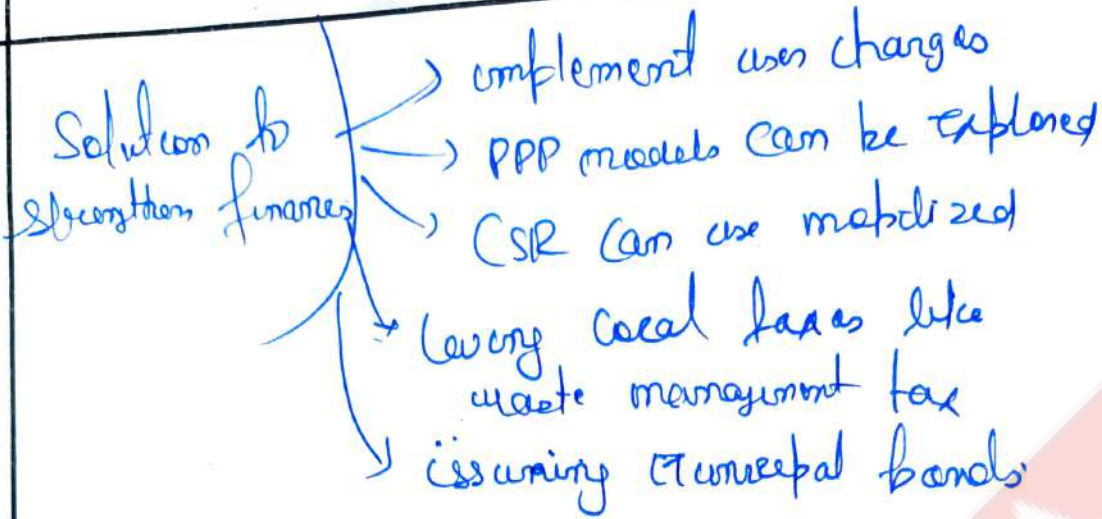 Solution to
strengthen finances
implement user charges
PPP models can be explored
CSR can use mobilized
levying local taxes like
waste management tax
issuning Municipal bonds.